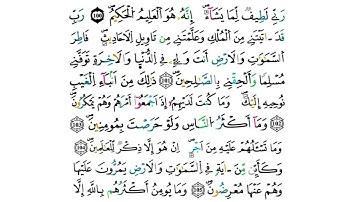 رَبِّي لَطِيفٌ لِّمَا يَشَآءُ ۚ إِنَّهُۥ هُوَ ٱلْعَلِيمُ ٱلْحَكِيمُ ﴿100﴾ رَبِّ
قَدْ ءَاتَيْتَنِي مِنَ ٱلْمُلْكِ وَعَلَّمْتَنِي مِن تَأْوِيلِ ٱلْأَحَادِيثِ ۚ فَاطِرَ
ٱلسَّمَٰوَٰتِ وَٱلْأَرْضِ أَنتَ وَلِيِّۦ فِي ٱلدُّنْيَا وَٱلْءَاخِرَةِ ۖ تَوَفَّنِي
مُسْلِمًا وَأَلْحِقْنِي بِٱلصَّٰلِحِينَ ﴿101﴾ ذَٰلِكَ مِنْ أَنۢبَآءِ ٱلْغَيْبِ
نُوحِيهِ إِلَيْكَ ۖ وَمَا كُنتَ لَدَيْهِمْ إِذْ أَجْمَعُوٓا۟ أَمْرَهُمْ وَهُمْ يَمْكُرُونَ
﴿102﴾ وَمَآ أَكْثَرُ ٱلنَّاسِ وَلَوْ حَرَصْتَ بِمُؤْمِنِينَ ﴿103﴾
وَمَا تَسْـَٔلُهُمْ عَلَيْهِ مِنْ أَجْرٍ ۚ إِنْ هُوَ إِلَّا ذِكْرٌ لِّلْعَٰلَمِينَ ﴿104﴾
وَكَأَيِّن مِّنْ ءَايَةٍ فِي ٱلسَّمَٰوَٰتِ وَٱلْأَرْضِ يَمُرُّونَ عَلَيْهَا
وَهُمْ عَنْهَا مُعْرِضُونَ ﴿105﴾ وَمَا يُؤْمِنُ أَكْثَرُهُم بِٱللَّهِ إِلَّا